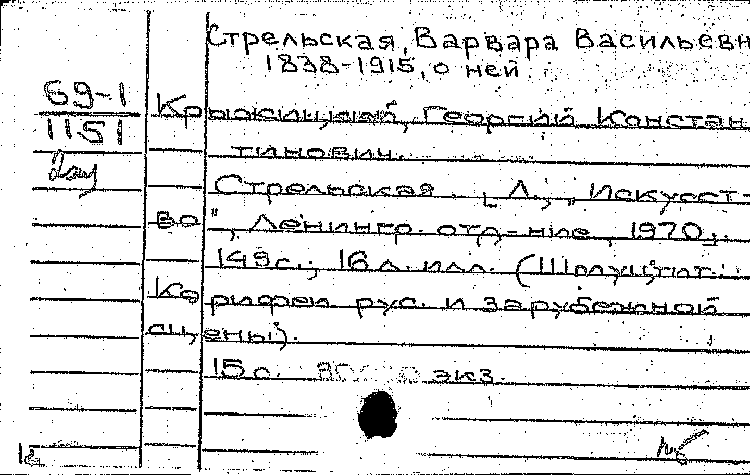 Стрельская, Варвара Васильевн
1838-1915, о ней.
69-1
1151
Крыжицкий, Георгий Констан
тинович.
Стрельская. [Л., „Искусст-
во", Ленингр. отд-ние, 1970].
149 с.; 16 л. илл. (
Корифеи рус. и зарубежной
сцены).
15 с. экз.